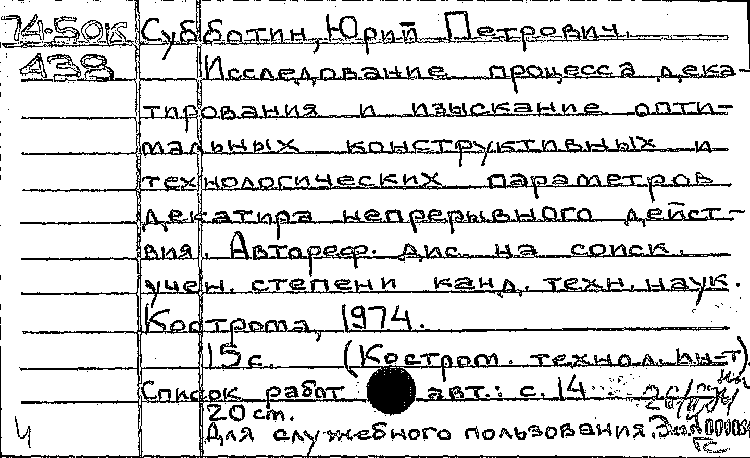 74-50К Субботин, Юрий Петрович.
438 Исследование процесса дека-
тирования и изыскание опти-
мальных конструктивных и
технологических параметров
декатира непрерывного дейст-
вия. Автореф. дис. на соиск.
учен. степени канд. техн. наук.
Кострома, 1974.
15 с. (Костром. технол. ин-т)
Список работ авт.: с. 14
20 cm.
Для служебного пользования.
Ч